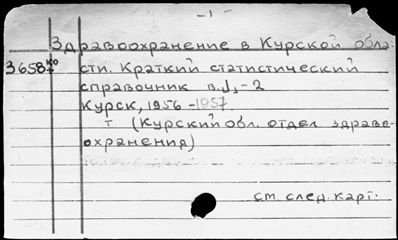 - 1 -
Здравоохранение в Курской обла-
36587ко сти. Краткий статистический
справочник в. 1-2
Курск, 1956 - 1957.
т (Курский обл. отдел здраво-
охранения)
см. след. карт.